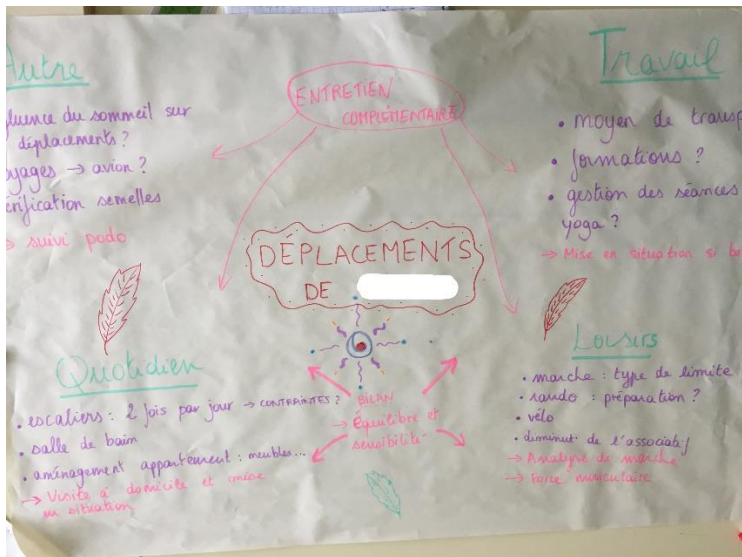 Autre
fluence du sommeil sur
déplacements ?
oyages → avion ?
érification semelles
→ suivi podo
ENTRETIEN
COMPLÉMENTAIRE
Travail
• moyen de transp
• formations ?
• gestion des séances
yoga ?
→ Mise en situation si be
DÉPLACEMENTS
DE
Quotidien
• escaliers : 2 fois par jour → CONTRAINTES ?
• salle de bain
• aménagement appartement : meubles...
→ Visite à domicile et mise
en situation
BILAN
→ Équilibre et
sensibilité
Loisirs
• marche : type de limite
• rando : préparation ?
• vélo
• de l'associatif
→ Analyse de marche
→ Force musculaire